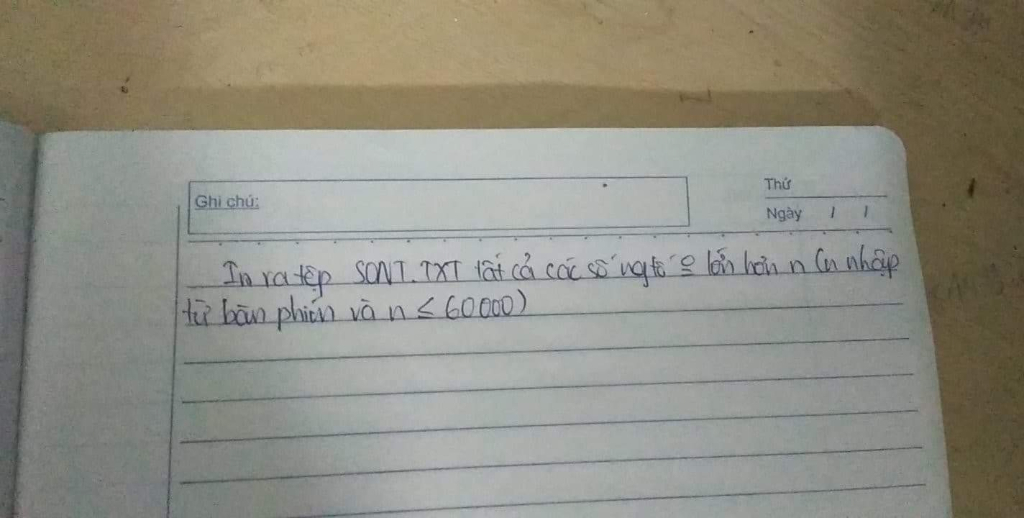 Ghi chú:
Thứ
Ngày / /
In ra tệp SONT.TXT tất cả các số ngtố º lớn hơn n (n nhập
từ bàn phím và n ≤ 60000)